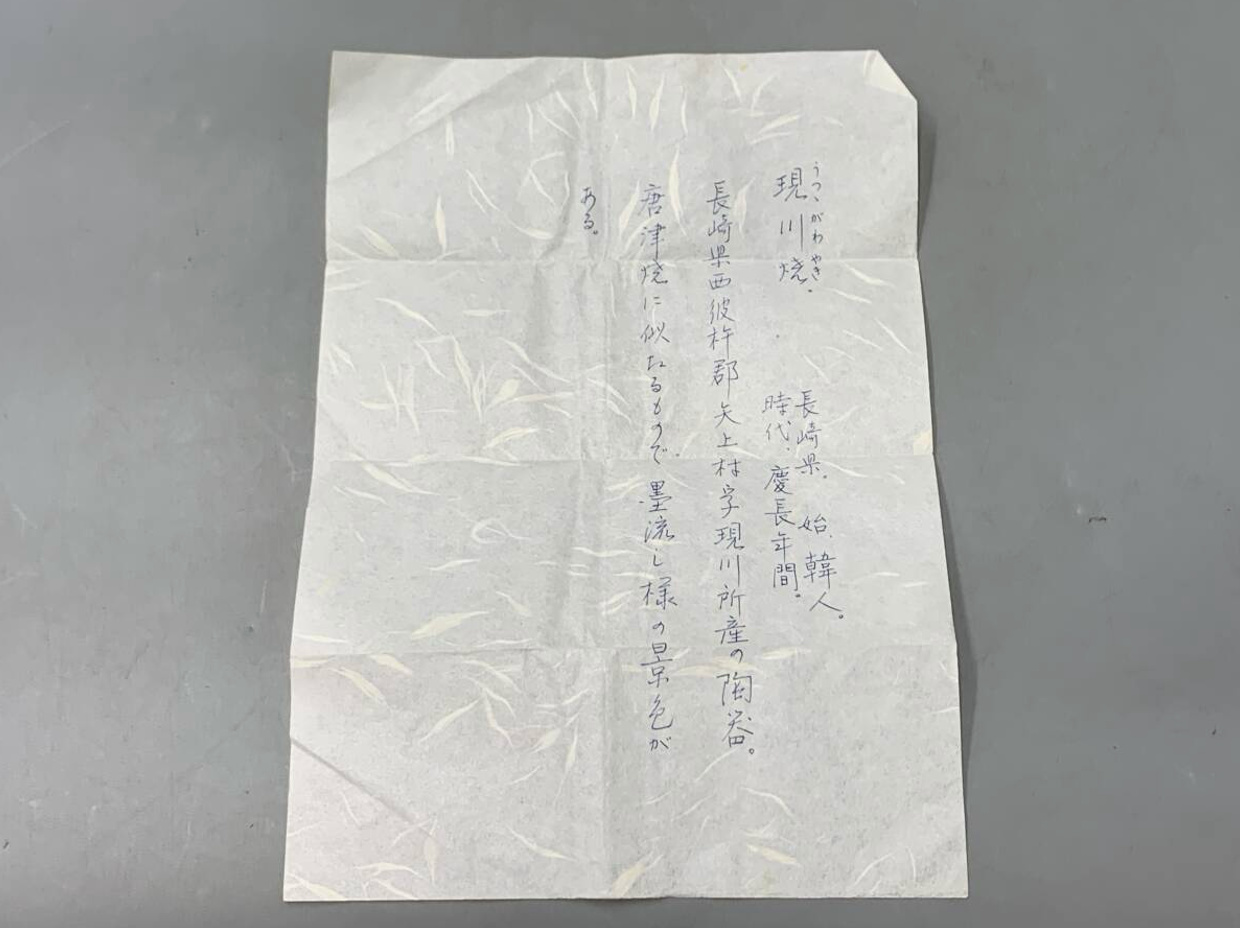 うつゝがわやき.
現川焼
長崎県。 始、韓人。
時代、慶長年間。
長崎県西彼杵郡矢上村字現川所産の陶器。
唐津焼に似たるもので、墨流し様の景色が
ある。